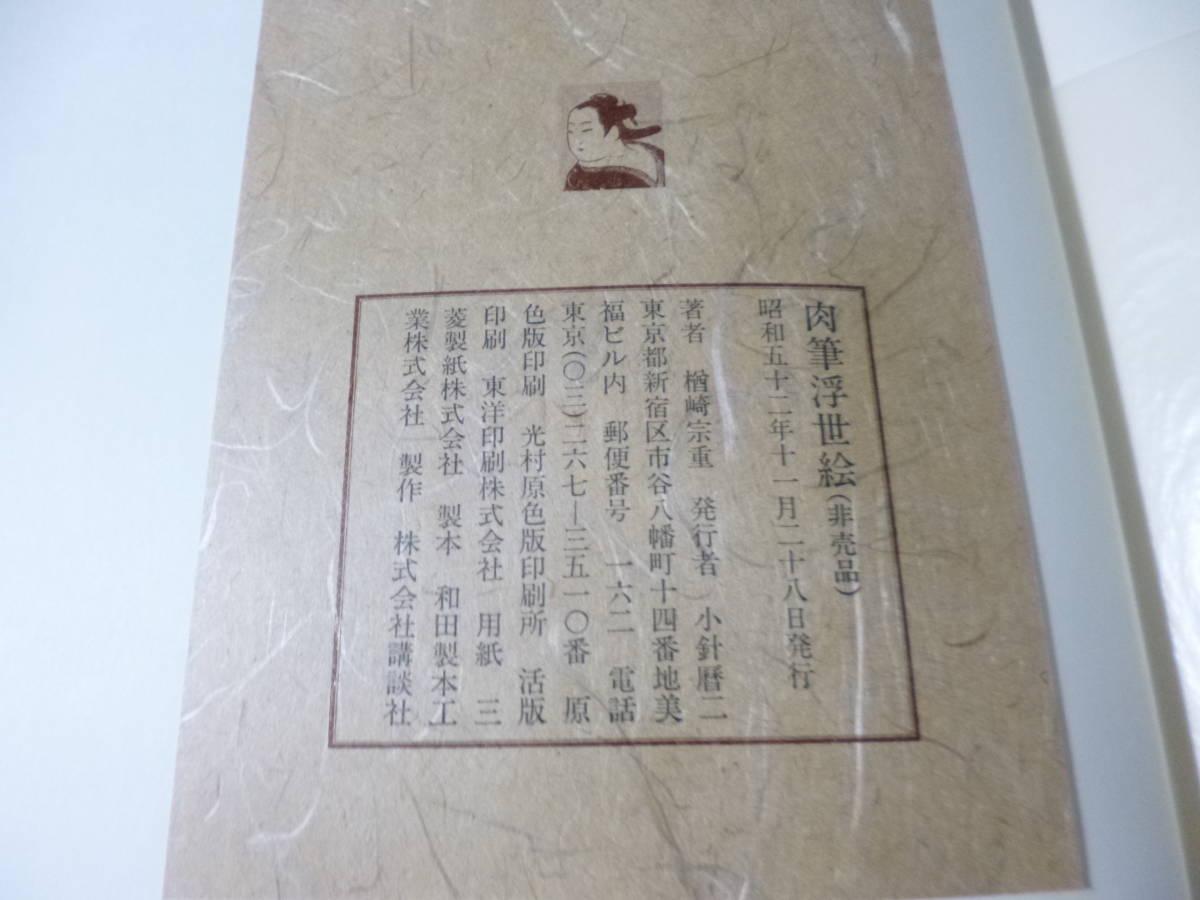 肉筆浮世絵(非売品)
昭和五十二年十一月二十八日発行
著者 楢崎宗重 発行者 小針暦二
東京都新宿区市谷八幡町十四番地美
福ビル内 郵便番号 一六二 電話
東京(〇三)二六七―三五一〇番 原
色版印刷 光村原色版印刷所 活版
印刷 東洋印刷株式会社 用紙 三
菱製紙株式会社 製本 和田製本工
業株式会社 製作 株式会社講談社